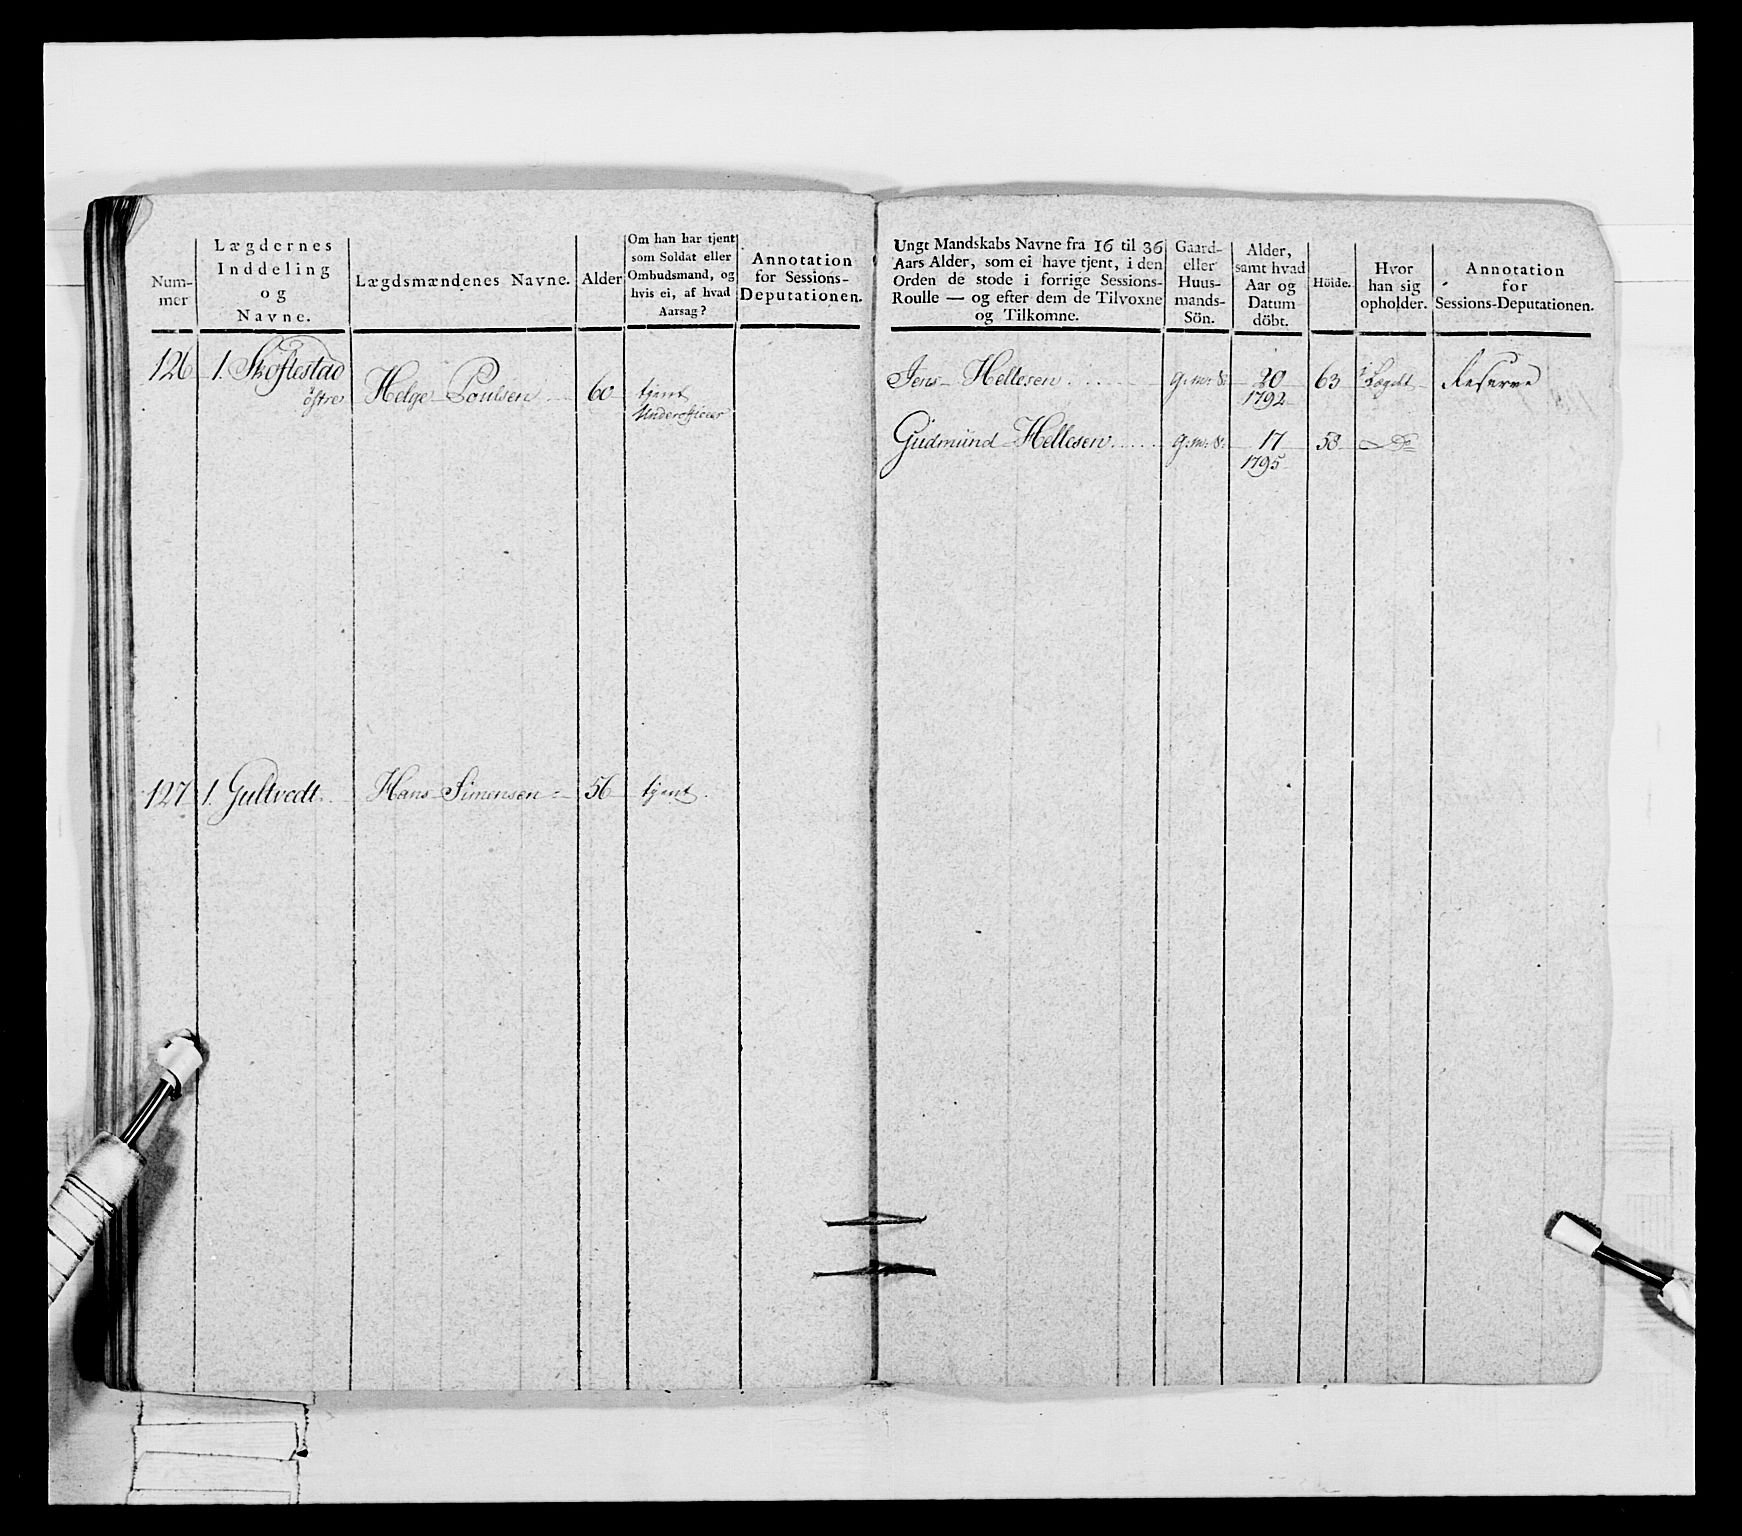 Num-
mer
Lægdernes
Inddeling
og
Navne.
Lægdsmændenes Navne.
Alder
Om han har tjent
som Soldat eller
Ombudsmand, og
hvis ei, af hvad
Aarsag?
Annotation
for Sessions-
Deputationen.
126 1. Skoftestad
östre
Helge Poulsen 60 tjent
Underofficer
127 1. Gultvedt. Hans Simensen 56 tjent.
Ungt Mandskabs Navne fra 16 til 36
Aars Alder, som ei have tjent, i den
Orden de stode i forrige Sessions-
Roulle — og efter dem de Tilvoxne
og Tilkomne.
Gaard-
eller
Huus-
mands-
Sön.
Alder,
samt hvad
Aar og
Datum
döbt.
Höide.
Hvor
han sig
opholder.
Annotation
for
Sessions-Deputationen.
Jens Hellesen G:m: S: 20 63 i Lægdt Reserve
1792
Gudmund Hellesen G:m: S: 17 58 Do
1795